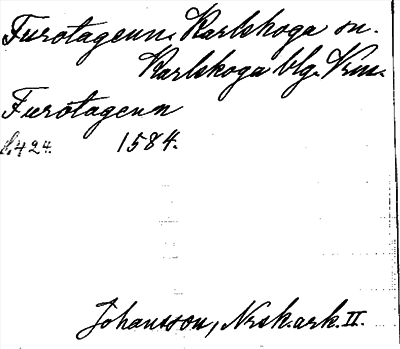 Furotagenn. Karlskoga sn.
Karlskoga blg. Vrm.
Furotagenn
s. 424. 1584.
Johansson, Nrsk. ark. II.